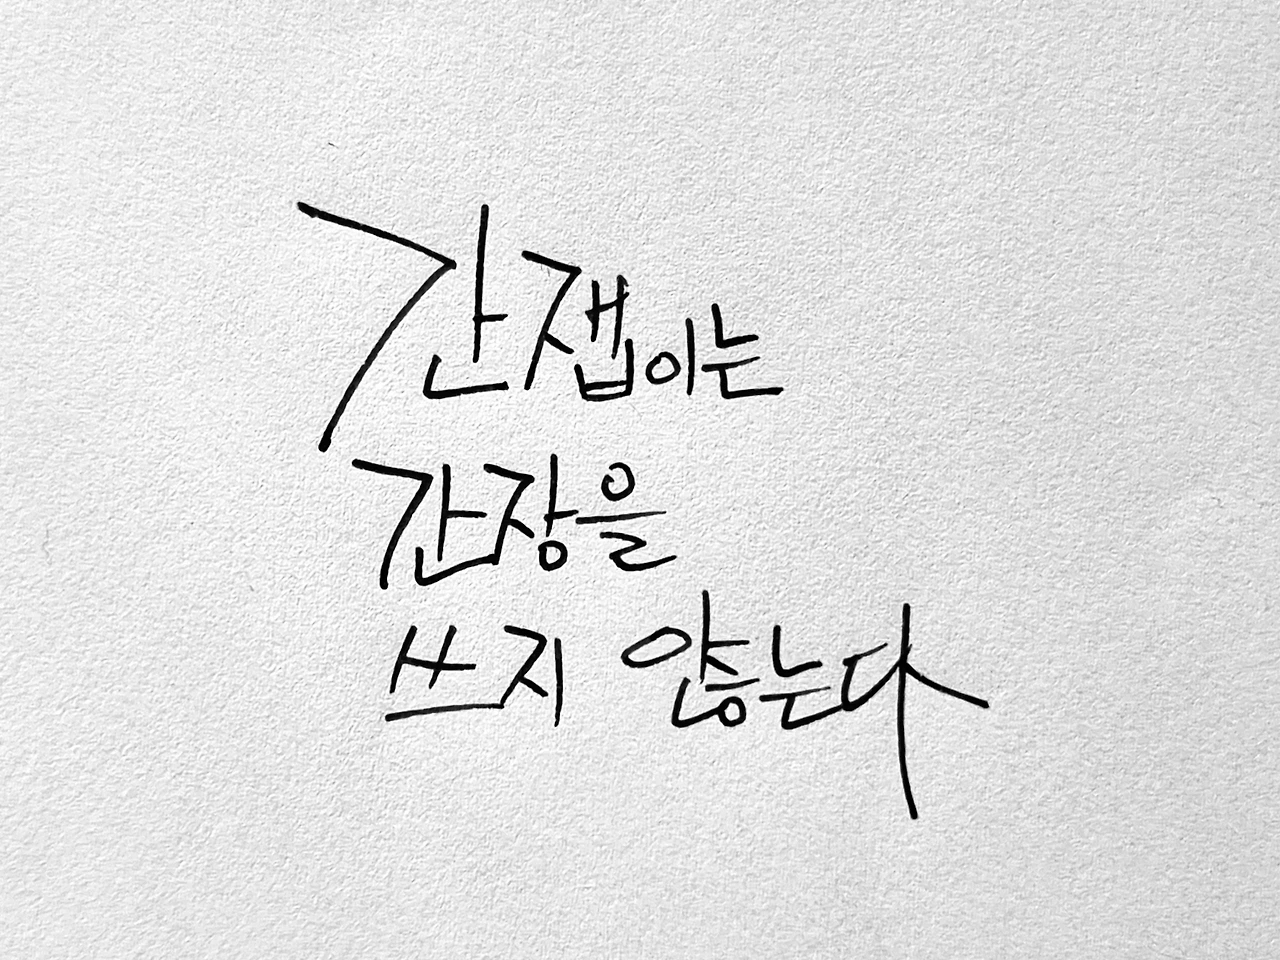 간잽이는
간장을
쓰지 않는다